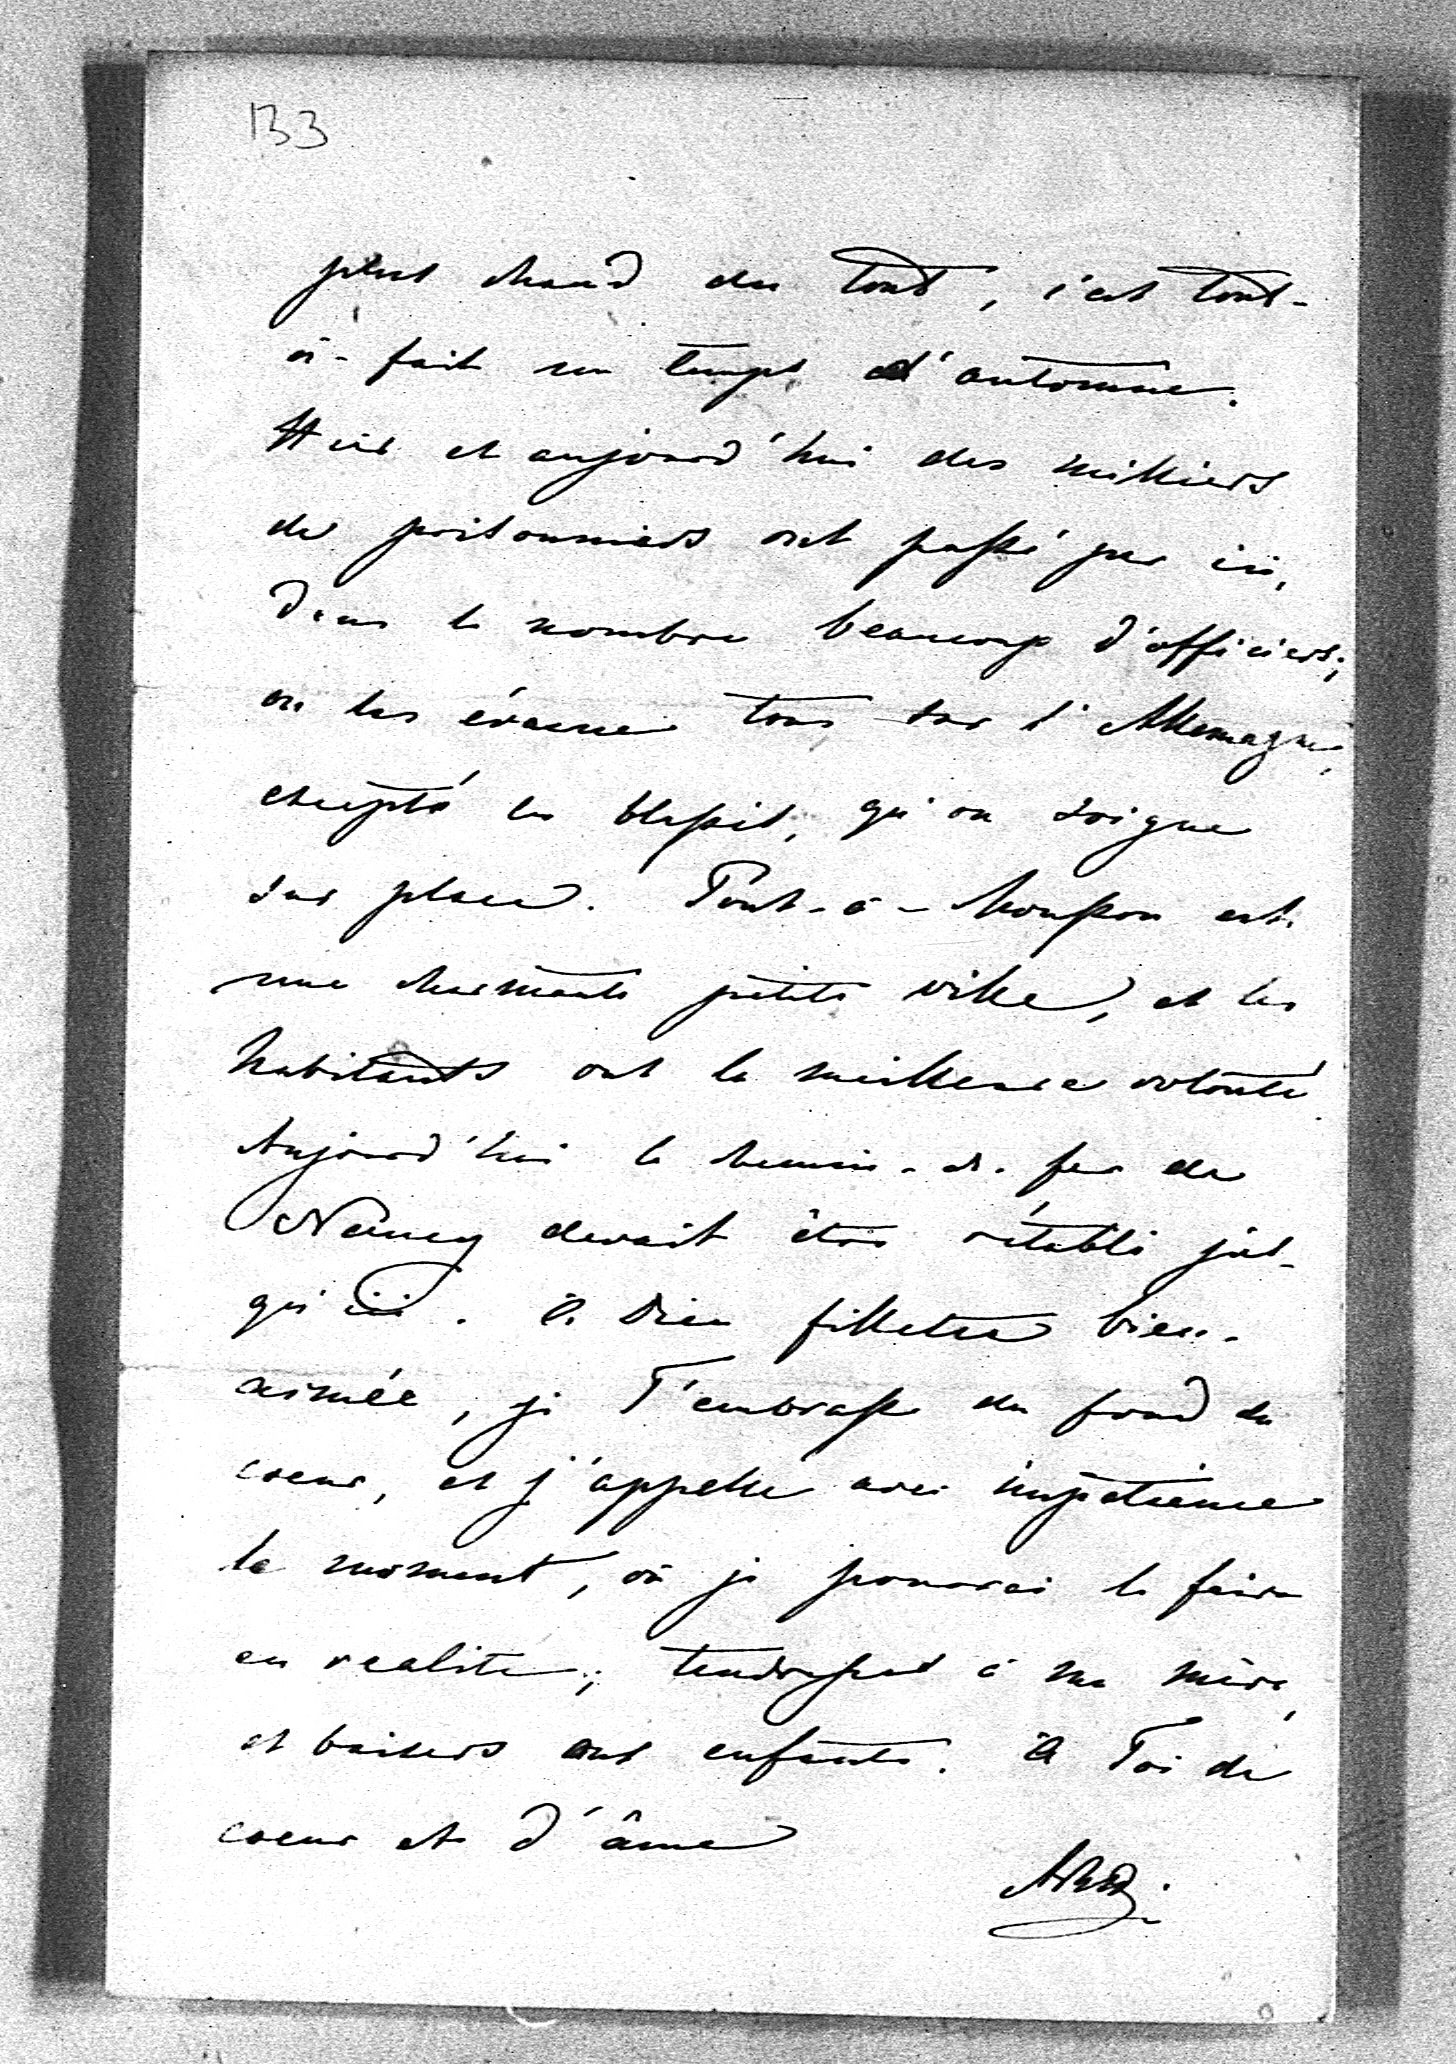 133
plus chaud du tout, c'est tout-
à-fait un temps d'automne.
Hier et aujourd'hui des milliers
de prisonniers ont passé par ici,
dans le nombre beaucoup d'officiers;
on les évacue tous sur l'Allemagne,
excepté les blessés, qu'on soigne
sur place. Pont-à-Mousson est
une charmante petite ville, et les
habitants ont la meilleure volonté.
Aujourd'hui le chemin-de-fer de
Nancy devait être rétabli jus-
qu'ici. à Dieu fillette bien-
aimée, je T'embrasse du fond du
coeur, et j'appelle avec impatience
le moment, où je pourrai le faire
en realité; tendresses à ma mère,
et baisers aux enfants. à Toi de
coeur et d'âme